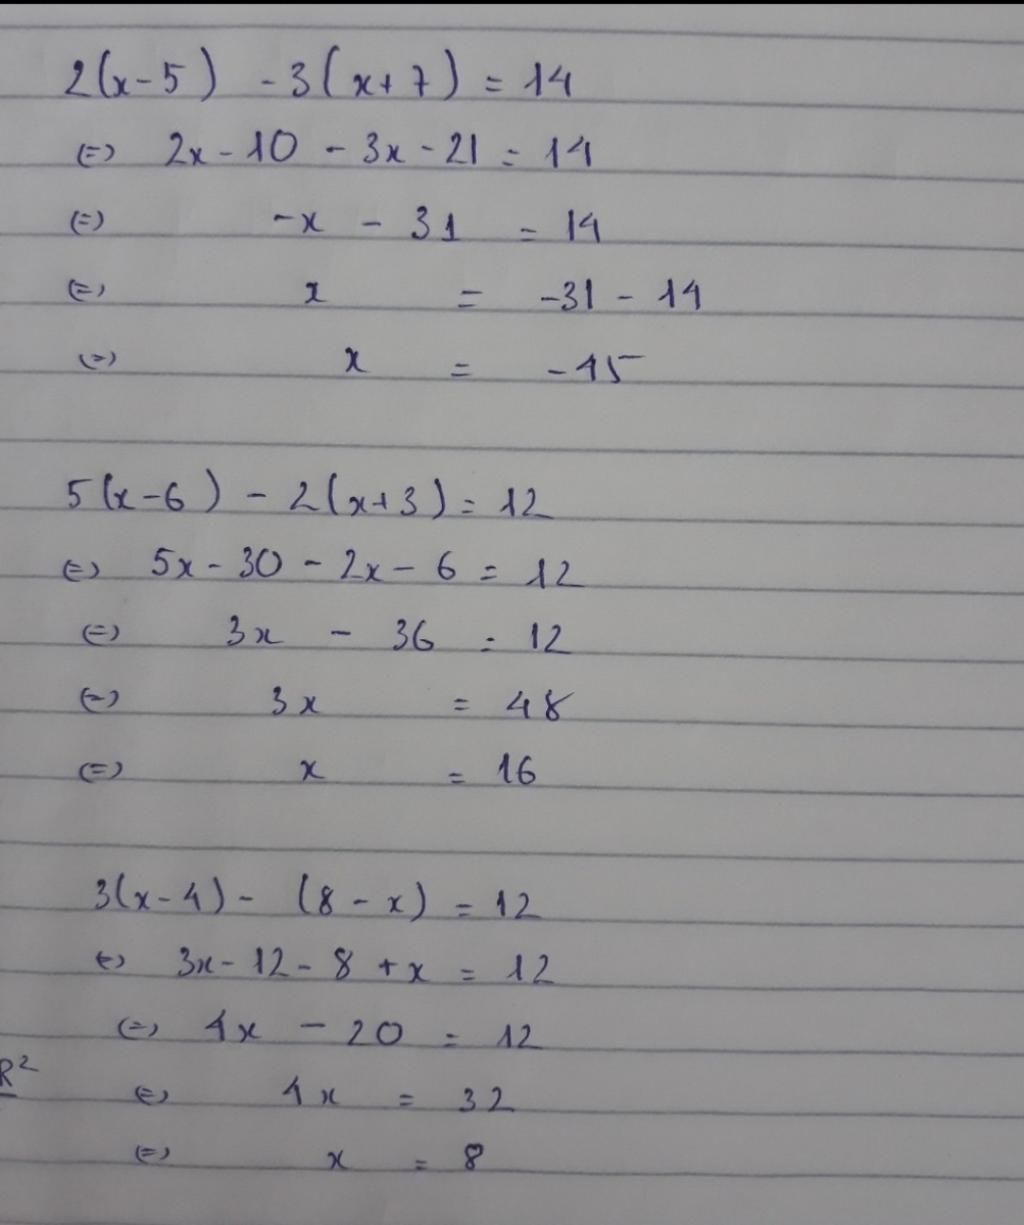 2(x-5) - 3(x+7) = 14
(=) 2x - 10 - 3x - 21 = 14
(=) -x - 31 = 14
(=) x = -31 - 14
(=) x = -45
5(x-6) - 2(x+3) = 12
(=) 5x - 30 - 2x - 6 = 12
(=) 3x - 36 = 12
(=) 3x = 48
(=) x = 16
3(x-4) - (8-x) = 12
(=) 3x - 12 - 8 + x = 12
(=) 4x - 20 = 12
R²
(=) 4x = 32
(=) x = 8